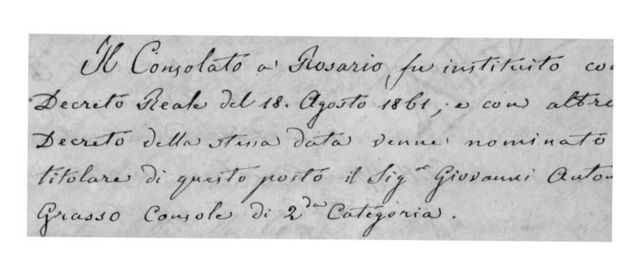 Il Consolato a Rosario, fu instituito co
Decreto Reale del 18. Agosto 1861, e con altro
Decreto della stessa data venne nominato
titolare di questo posto il Sigr Giovanni Anton
Grasso Console di 2da Categoria.